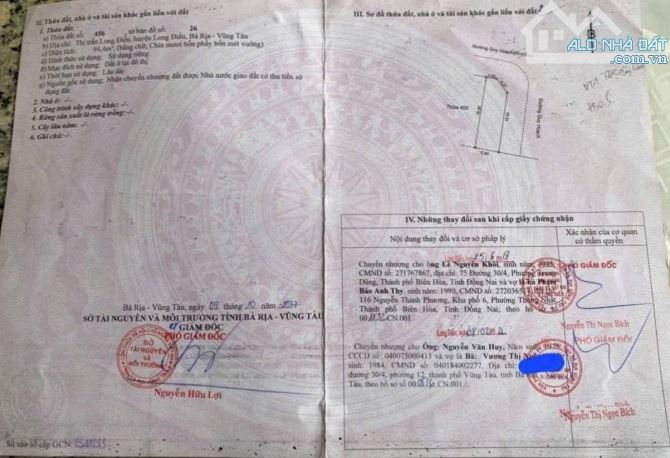 II. Thửa đất, nhà ở và tài sản khác gắn liền với đất
1. Thửa đất:
a) Thửa đất số: 456 tờ bản đồ số: 26
b) Địa chỉ: Thị trấn Long Điền, huyện Long Điền, Bà Rịa - Vũng Tàu
c) Diện tích: 94,4m², (bằng chữ: Chín mươi bốn phẩy bốn mét vuông)
d) Hình thức sử dụng: Sử dụng riêng
đ) Mục đích sử dụng: Đất ở tại đô thị
e) Thời hạn sử dụng: Lâu dài
g) Nguồn gốc sử dụng: Nhận chuyển nhượng đất được Nhà nước giao đất có thu tiền sử
dụng đất
2. Nhà ở: -/-
3. Công trình xây dựng khác: -/-
4. Rừng sản xuất là rừng trồng: -/-
5. Cây lâu năm: -/-
6. Ghi chú: -/-
Bà Rịa - Vũng Tàu, ngày 09 tháng 10 năm
SỞ TÀI NGUYÊN VÀ MÔI TRƯỜNG TỈNH BÀ RỊA - VŨNG TÀU
GIÁM ĐỐC
PHÓ GIÁM ĐỐC
SỞ
TÀI NGUYÊN
VÀ
MÔI TRƯỜNG
Nguyễn Hữu Lợi
Số vào sổ cấp GCN:
III. Sơ đồ thửa đất, nhà ở và tài sản khác gắn liền với đất
ALO NHÀ ĐẤT
B
Đường Quy Hoạch
Thửa 455
Đường Quy Hoạch
IV. Những thay đổi sau khi cấp giấy chứng nhận
Nội dung thay đổi và cơ sở pháp lý
Xác nhận của cơ quan
có thẩm quyền
Chuyển nhượng cho ông Lê Nguyên Khôi, sinh năm
CMND số: 271767867, địa chỉ: 75 Đường 30/4, Phường Trung
Dũng, Thành phố Biên Hòa, Tỉnh Đồng Nai và vợ là bà Phạm
Bảo Anh Thy, sinh năm: 1990, CMND số:
116 Nguyễn Thành Phương, Khu phố 6, Phường Thống Nhất,
Thành phố Biên Hòa, Tỉnh Đồng Nai; theo hồ sơ
.CN.001
PHÓ GIÁM ĐỐC
Nguyễn Thị Ngọc Bích
Chuyển nhượng cho Ông: Nguyễn Văn Huy, Năm
CCCD số: 040075000415 và vợ là Bà: Vương Thị
sinh năm: 1984, CMND số: 040184002277, Địa chỉ:
đường 30/4, phường 12, thành phố Vũng Tàu, tỉnh Bà
Tàu, theo hồ sơ số .CN.001./.
PHÓ GIÁM ĐỐC
Nguyễn Thị Ngọc Bích